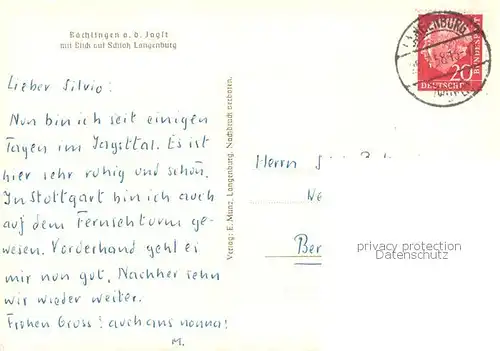 Bächlingen a. d. Jagst
mit Blick auf Schloß Langenburg
LANGENBURG
20
DEUTSCHE
BUNDESPOST
Lieber Silvio!
Nun bin ich seit einigen
Tagen im Jagsttal. Es ist
hier sehr ruhig und schön.
In Stuttgart bin ich auch
auf dem Fernsehturm ge-
wesen. Vorderhand geht es
mir nun gut. Nachher sehn
wir wieder weiter.
Frohen Gruss! auch ans nonna!
M.
Verlag: E. Munz, Langenburg. Nachdruck verboten.
Herrn
Ne
Ber
privacy protection
Datenschutz